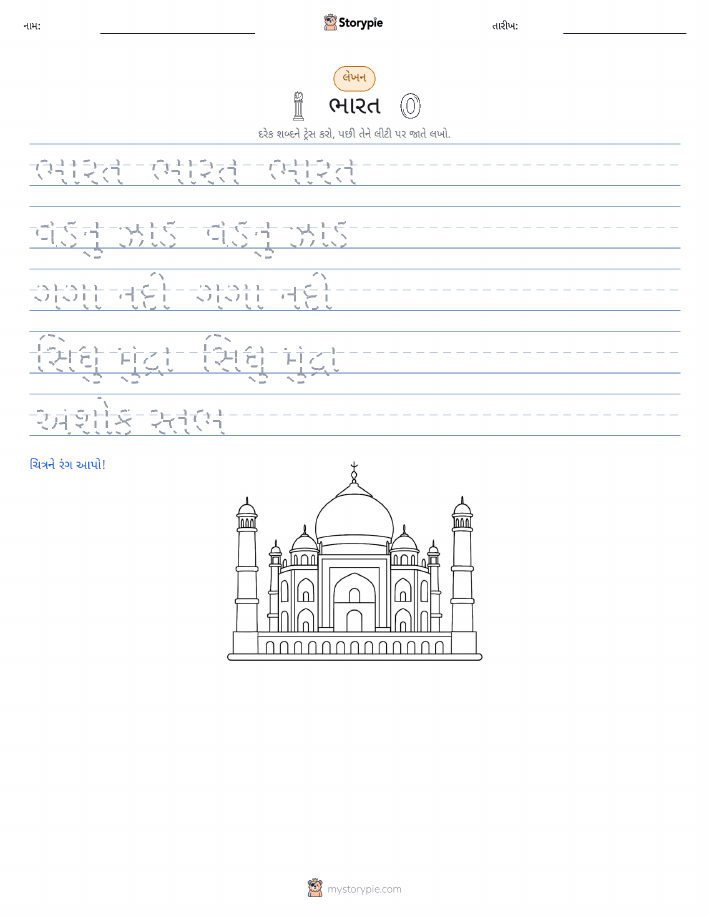 નામ:
Storypie
તારીખ:
લેખન
ભારત
દરેક શબ્દને ટ્રેસ કરો, પછી તેને લીટી પર જાતે લખો.
ભારત ભારત ભારત
વડનુ ઝાડ વડનુ ઝાડ
ગગા નદી ગગા નદી
સિધુ મુદ્રા સિધુ મુદ્રા
અશોક સ્તભ
ચિત્રને રંગ આપો!
mystorypie.com